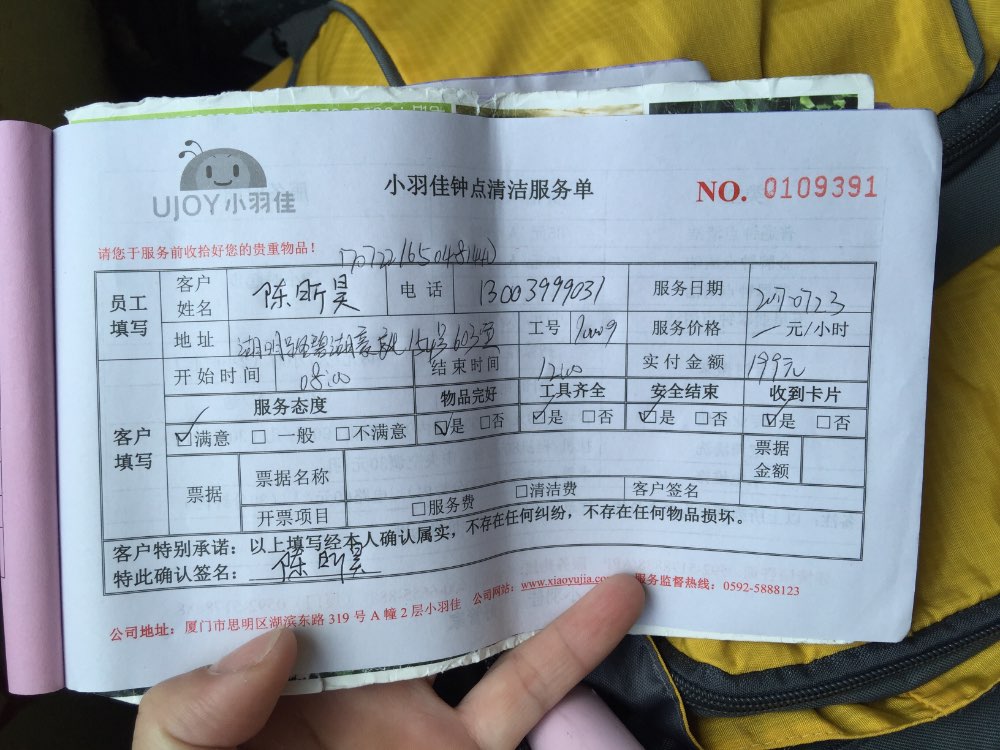 UJOY小羽佳
小羽佳钟点清洁服务单
NO. 0109391
请您于服务前收拾好您的贵重物品！
员工填写 客户姓名 陈昕昊 电话 13003999031 服务日期
地址 工号 服务价格 元/小时
开始时间 08:00 结束时间 12:00 实付金额 199元
客户填写 服务态度 物品完好 工具齐全 安全结束 收到卡片
☑满意 □一般 □不满意 ☑是 □否 ☑是 □否 ☑是 □否 ☑是 □否
票据 票据名称 票据金额
开票项目 □服务费 □清洁费 客户签名
客户特别承诺：以上填写经本人确认属实，不存在任何纠纷，不存在任何物品损坏。
特此确认签名：陈昕昊
公司地址：厦门市思明区湖滨东路 319 号 A 幢 2 层小羽佳 公司网站：www.xiaoyujia.com 服务监督热线：0592-5888123